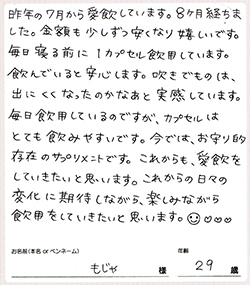 昨年の7月から愛飲しています。8ヶ月経ちま
した。金額も少しずつ安くなり嬉しいです。
毎日寝る前に1カプセル飲用しています。
飲んでいると安心します。吹きでものは、
出にくくなったのかなあと実感しています。
毎日飲用しているのですが、カプセルは
とても飲みやすいです。今では、お守り的
存在のサプリメントです。これからも、愛飲を
していきたいと思います。これからの日々の
変化に期待しながら、楽しみながら
飲用をしていきたいと思います。☺♡♡♡♡
お名前(本名 or ペンネーム) 年齢
もじゃ 様 29 歳